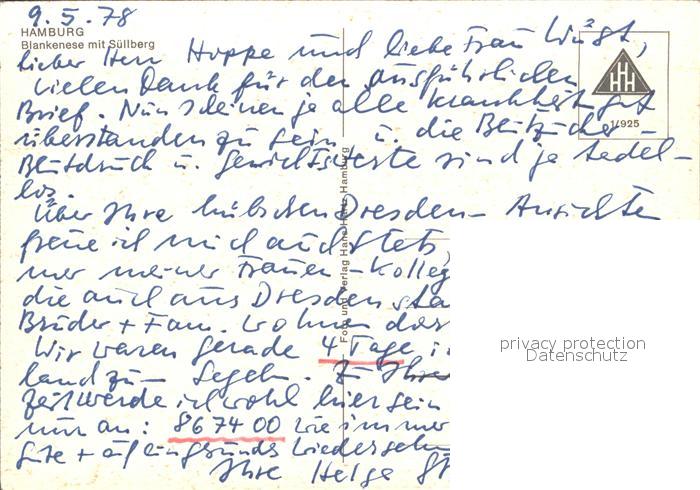 9.5.78
HAMBURG
Blankenese mit Süllberg
Lieber Herr Hoppe und liebe Frau
vielen Dank für den ausführlichen
Brief. Nun scheinen ja alle Krankheit gut
überstanden zu sein u. die Blutzucker-
Blutdruck u. Gewichtswerte sind ja tadel-
los.
Über Ihre hübschen Dresden- Ansichten
freue ich mich auch stets,
mer meiner Frauen-Kolleg
die auch aus Dresden sta
Brüder + Fam. wohnen dor
Wir waren gerade 4 Tage i
land zum Segeln. Zu Ihre
Zeit werde ich wohl hier sein
nun an: 867400 wie immer
Gute + auf ein gesundes Wiedersehn
Ihre Helga
Foto und Verlag Hans Hartz, Hamburg
HHH
1/925
privacy protection
Datenschutz